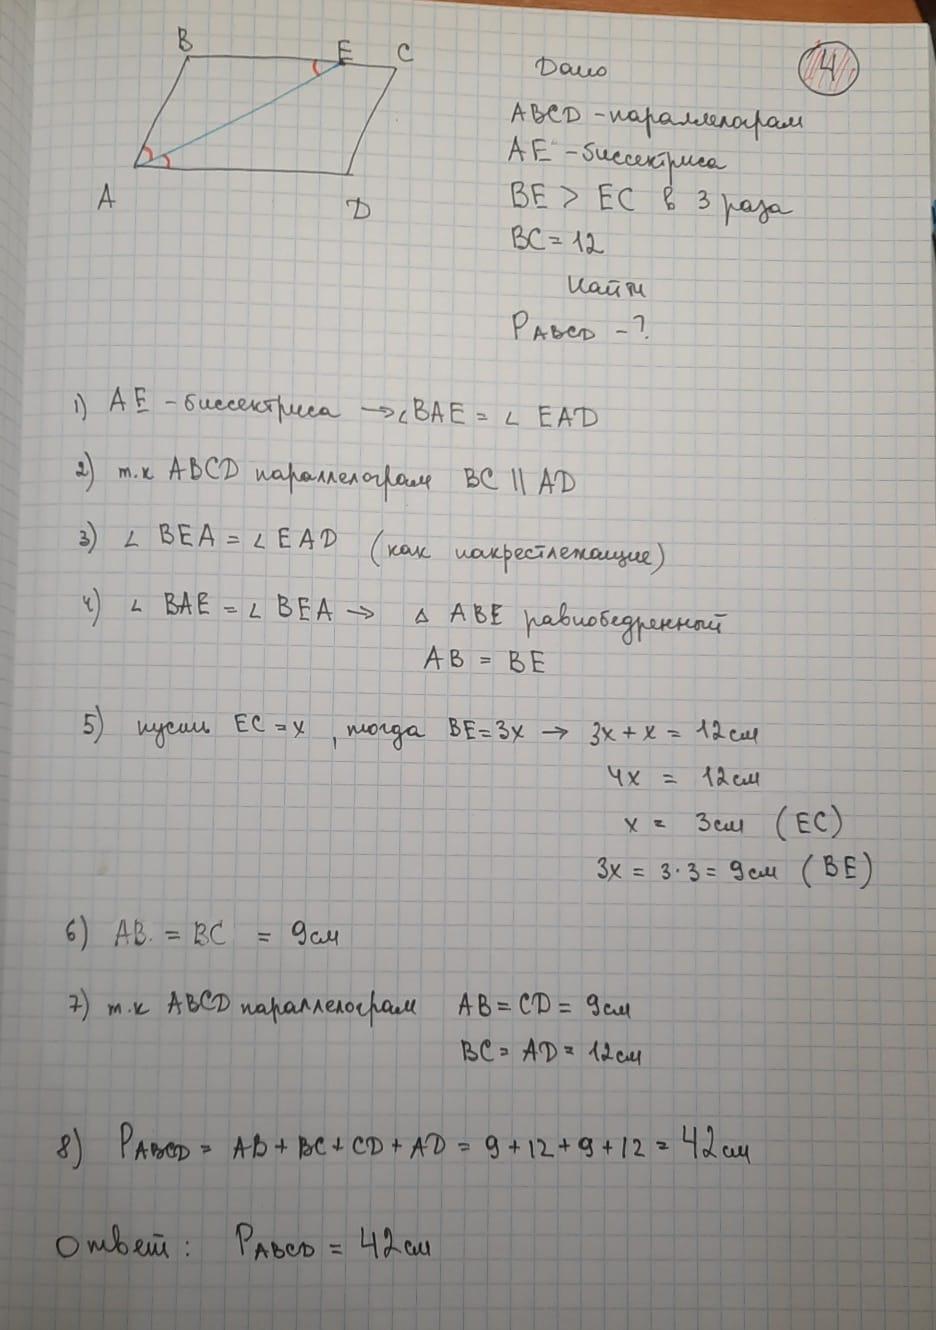 B E C
A D
4
Дано
ABCD - параллелограм
AE - биссектриса
BE > EC в 3 раза
BC = 12
Найти
PABCD - ?
1) AE - биссектриса → ∠BAE = ∠ EAD
2) т.к ABCD параллелограм BC || AD
3) ∠ BEA = ∠ EAD (как накрестлежащие)
4) ∠ BAE = ∠ BEA → △ ABE равнобедренный
AB = BE
5) пусть EC = x, тогда BE = 3x → 3x + x = 12 см
4x = 12 см
x = 3 см (EC)
3x = 3 · 3 = 9 см (BE)
6) AB = BC = 9 см
7) т.к ABCD параллелограм AB = CD = 9 см
BC = AD = 12 см
8) PABCD = AB + BC + CD + AD = 9 + 12 + 9 + 12 = 42 см
Ответ: PABCD = 42 см